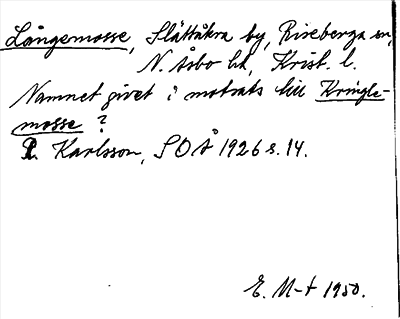 Långemosse, Slättåkra by, Riseberga sn,
N. Åsbo hd, Krist. l.
Namnet givet i motsats till Kringle-
mosse?
P. Karlsson, SOÅ 1926 s. 14.
E. M-t 1950.